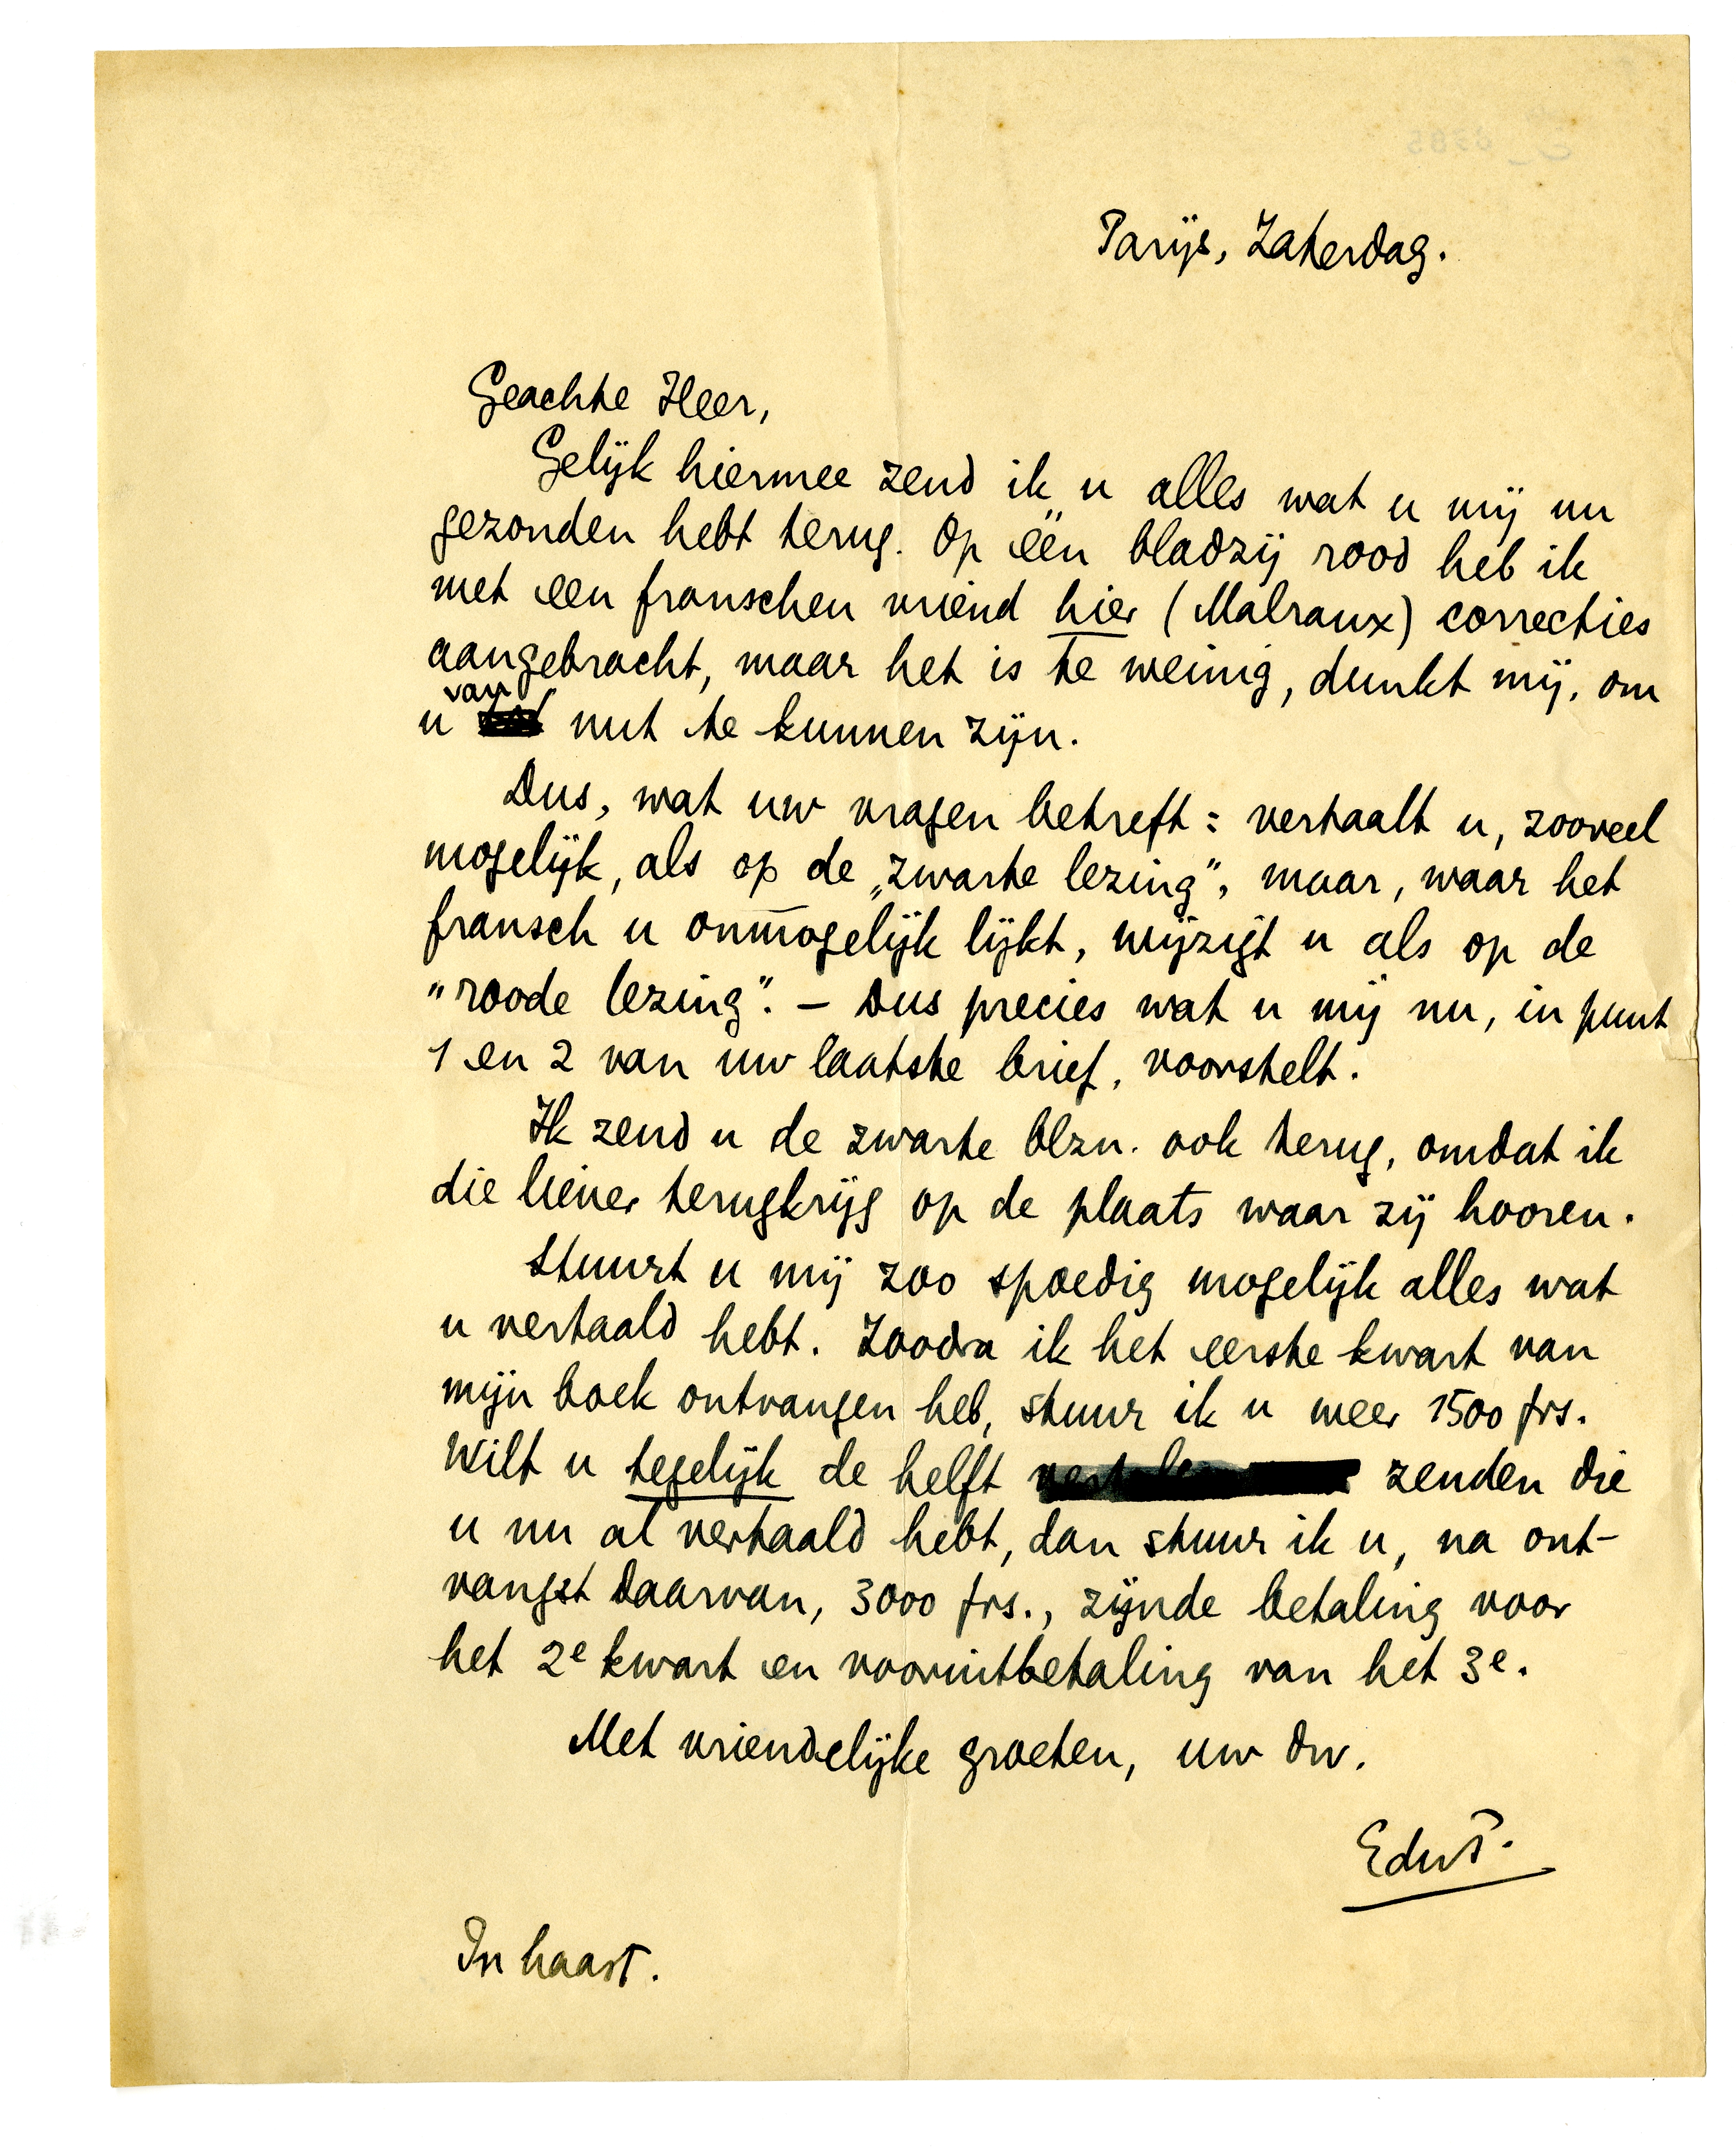 Parijs, Zaterdag.
Geachte Heer,
Gelijk hiermee zend ik u alles wat u mij nu
gezonden hebt terug. Op één bladzij rood heb ik
met een franschen vriend hier (Malraux) correcties
aangebracht, maar het is te weinig, dunkt mij, om
u van nut te kunnen zijn.
Dus, wat uw vragen betreft: vertaalt u, zooveel
mogelijk, als op de „zwarte lezing", maar, waar het
fransch u onmogelijk lijkt, wijzigt u als op de
"roode lezing". — Dus precies wat u mij nu, in punt
1 en 2 van uw laatste brief, voorstelt.
Ik zend u de zwarte blzn. ook terug, omdat ik
die liever terugkrijg op de plaats waar zij hooren.
Stuurt u mij zoo spoedig mogelijk alles wat
u vertaald hebt. Zoodra ik het eerste kwart van
mijn boek ontvangen heb, stuur ik u weer 1500 frs.
Wilt u tegelijk de helft zenden die
u nu al vertaald hebt, dan stuur ik u, na ont-
vangst daarvan, 3000 frs., zijnde betaling voor
het 2e kwart en vooruitbetaling van het 3e.
Met vriendelijke groeten, uw dw.
EduP.
In haast.